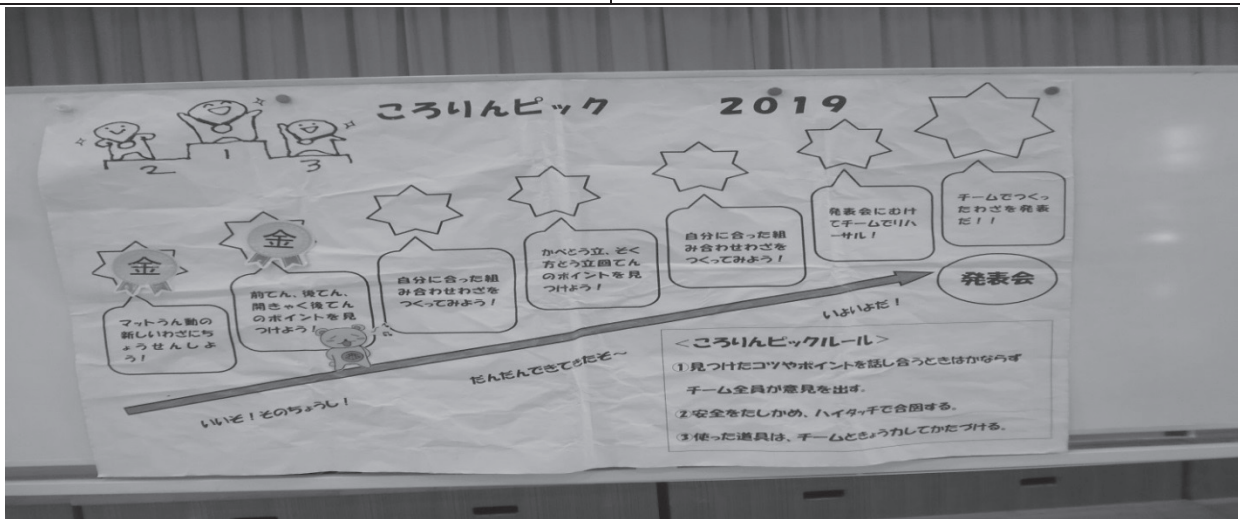 ころりんピック 2019
2 1 3
金
金
マットうん動の
新しいわざにち
ょうせんしよ
う！
前てん、後てん、
開きゃく後てん
のポイントを見
つけよう！
自分に合った組
み合わせわざを
つくってみよう！
かべとう立、そく
方とう立回てん
のポイントを見
つけよう！
自分に合った組
み合わせわざを
つくってみよう！
発表会にむけ
てチームでリハ
ーサル！
チームでつくっ
たわざを発表
だ！！
発表会
いいぞ！そのちょうし！
だんだんできてきたぞ～
いよいよだ！
＜ころりんピックルール＞
①見つけたコツやポイントを話し合うときはかならず
チーム全員が意見を出す。
②安全をたしかめ、ハイタッチで合図する。
③使った道具は、チームときょう力してかたづける。